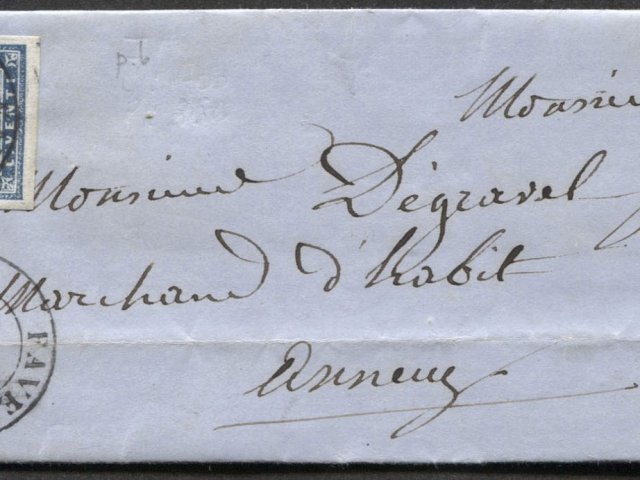 p.6
VENTI
Monsieu
Monsieur Dégravel
Marchand d'habit
Annecy
FAVE